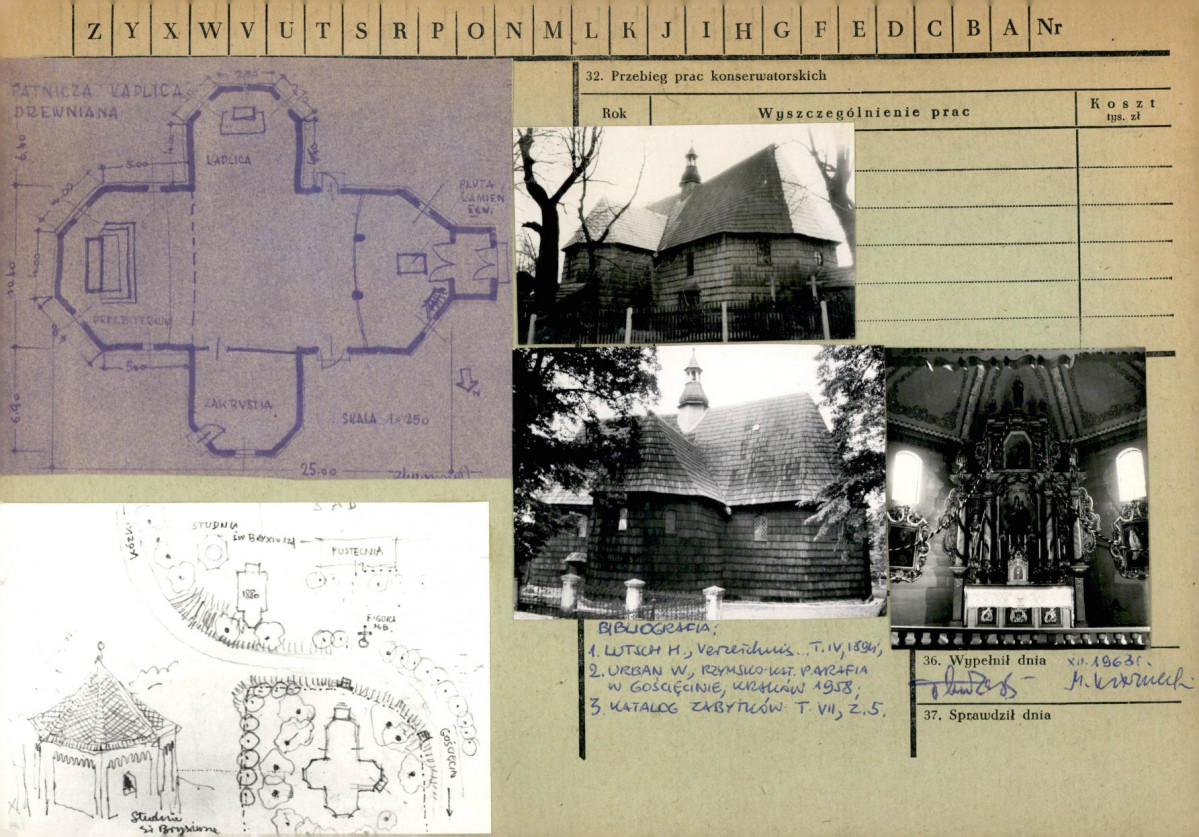 Z Y X W V U T S R P O N M L K J I H G F E D C B A Nr
PĄTNICZA KAPLICA
DREWNIANA
KAPLICA
5.00
PŁYTA
KAMIEN
PREZBITERIUM
5.00
6.90
ZAKRYSTIA
SKALA 1:250
N
25.00
32. Przebieg prac konserwatorskich
Rok
Wyszczególnienie prac
Koszt
tys. zł
SAD
STUDNIA
ŚW BRYXIUSZA
PUSTELNIA
KOŹLI
1880
FIGURA
M.B.
GOŚCIĘCIN
Studnia
św Bryxiusza
BIBLIOGRAFIA:
1. LUTSCH H., Verzeichnis... T. IV, 1894;
2. URBAN W., RZYMSKO-KAT. PARAFIA
W GOŚCIĘCINIE, KRAKÓW 1958;
3. KATALOG ZABYTKÓW T. VII, Z. 5.
36. Wypełnił dnia XII.1963r.
37. Sprawdził dnia